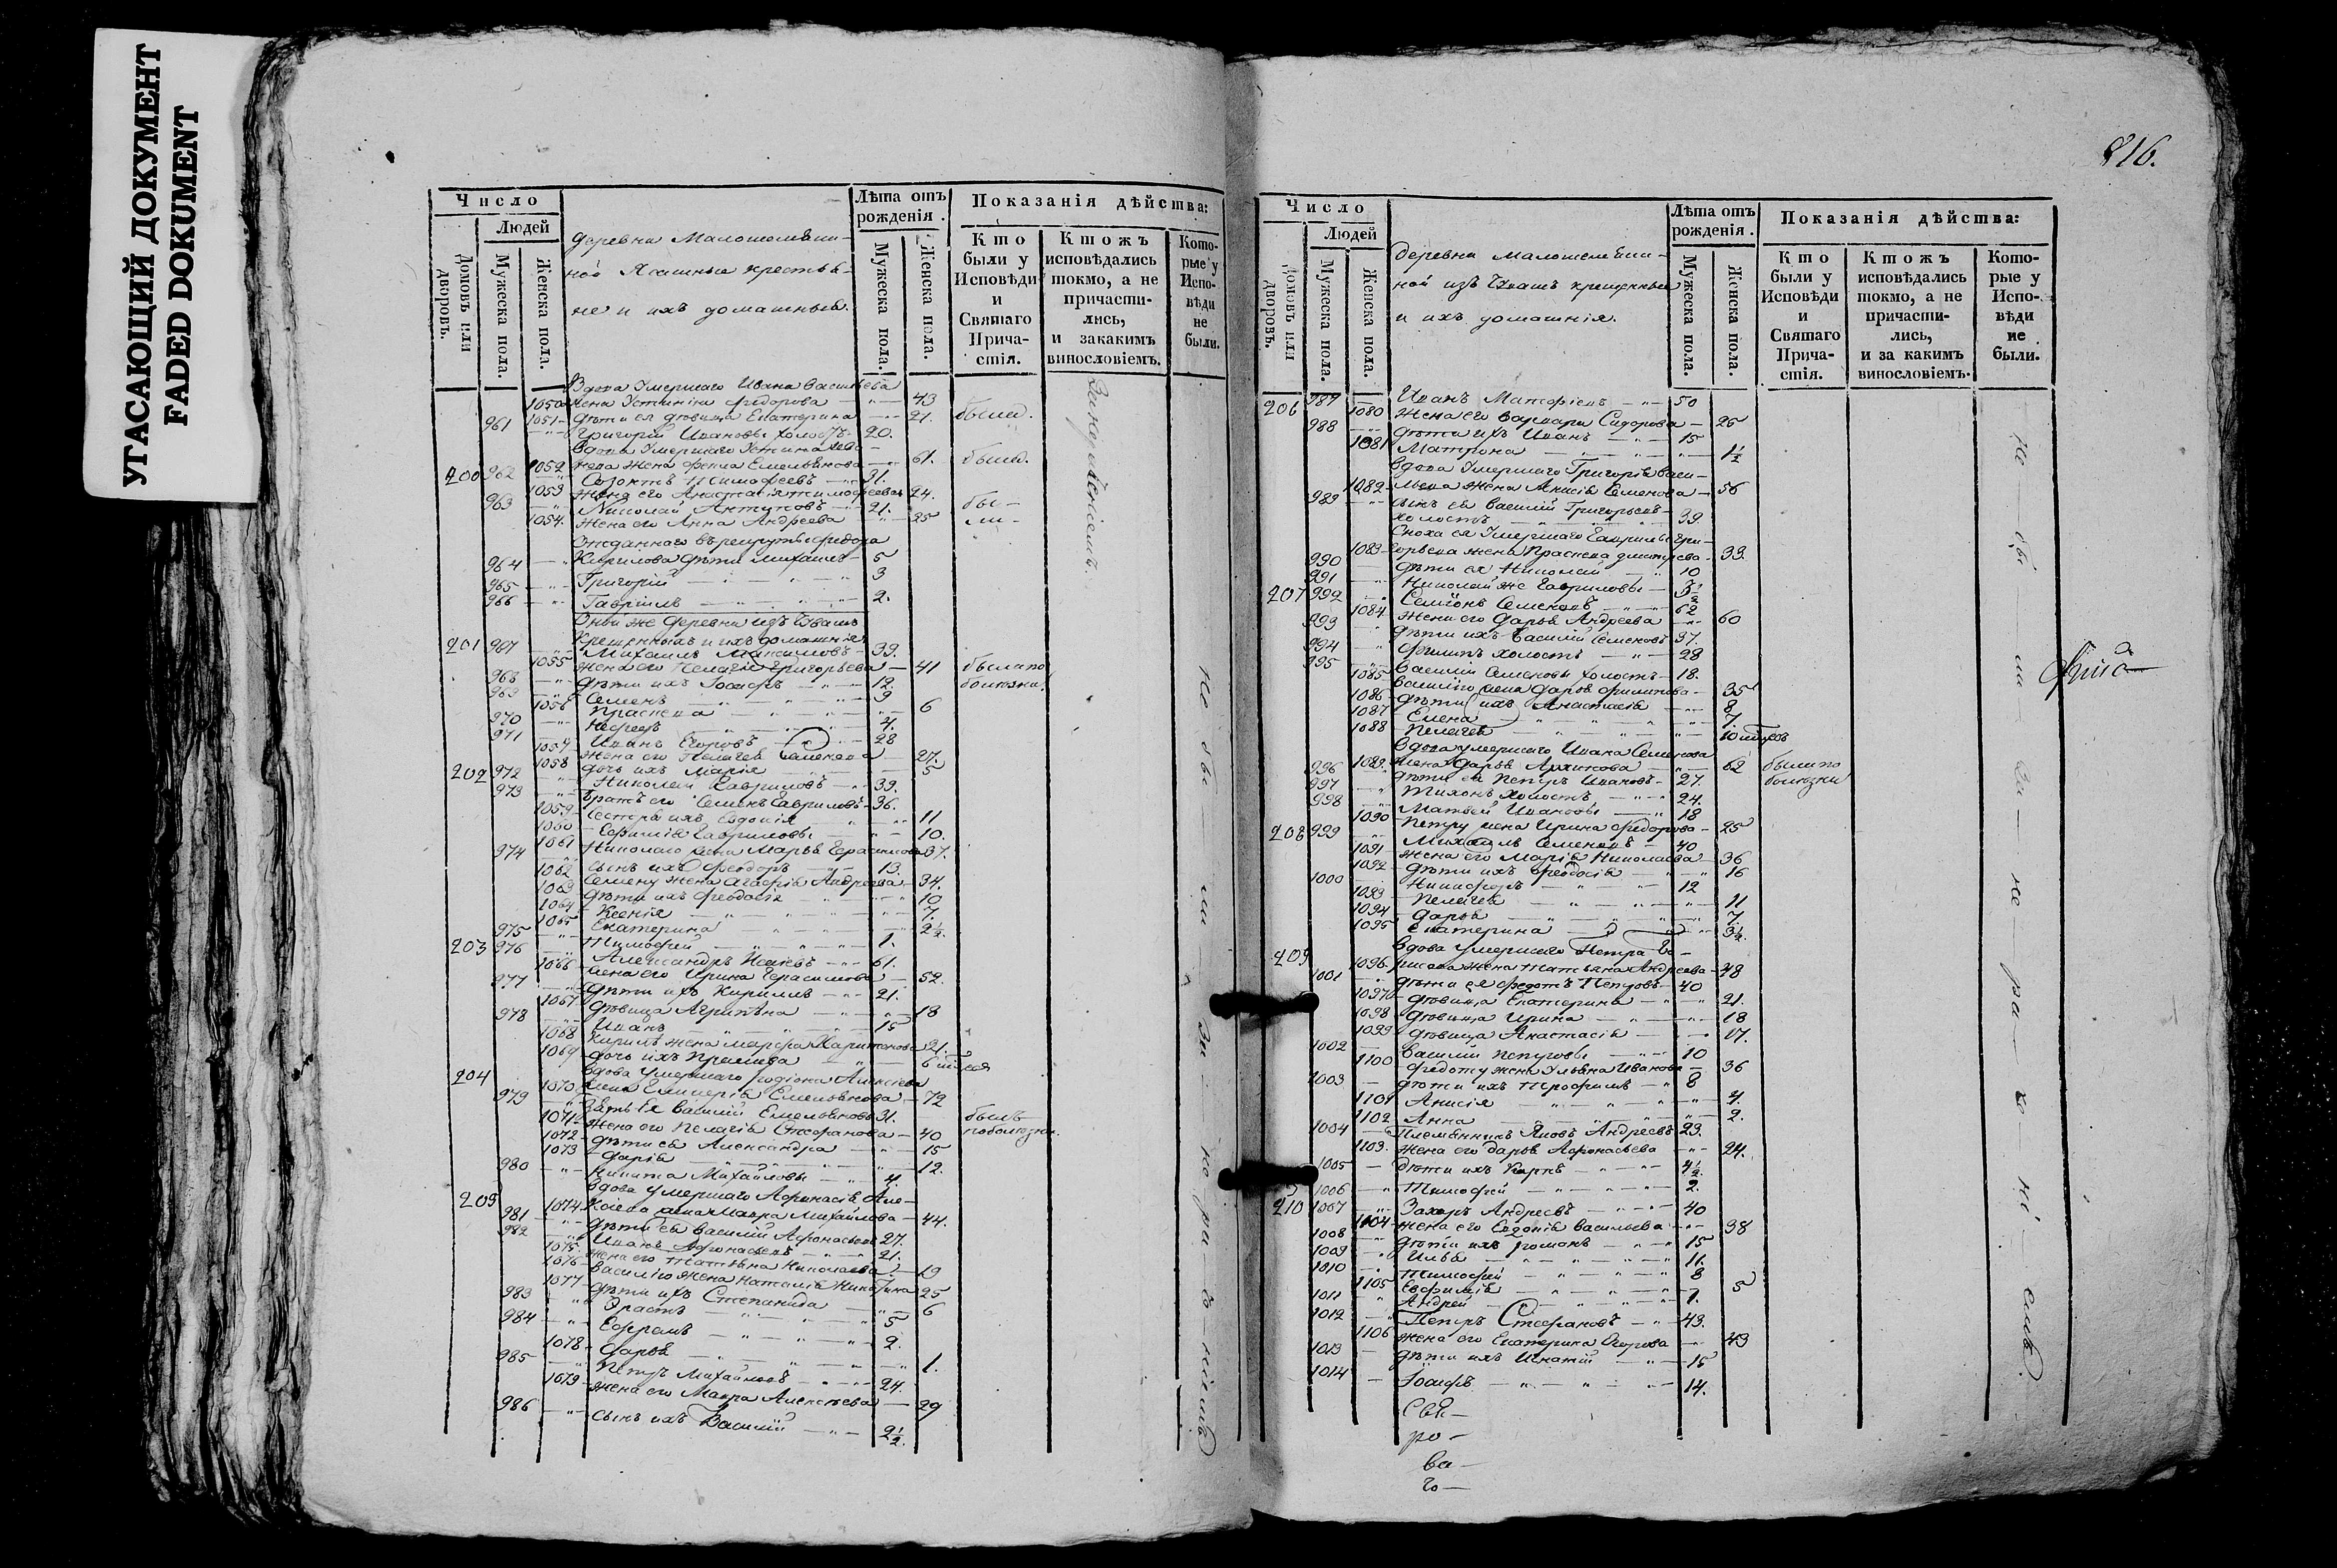 УГАСАЮЩИЙ ДОКУМЕНТ
FADED DOKUMENT
Число
Людей
Домовъ или дворовъ.
Мужеска пола.
Женска пола.
деревня
ной Ясашные крестья-
не и ихъ домашныя.
Лѣта отъ рожденія.
Мужеска пола.
Женска пола.
Показанія дѣйства:
Кто были у Исповѣди и Святаго Причастія.
Ктожъ исповѣдались токмо, а не причасти-лись, и закакимъ винословіемъ.
Кото-рые у Испо-вѣди не были.
Вдова Умершаго Ивана Васильева
1050 жена Устинія Федорова 43
1051 дѣти ея дѣвица Екатерина 21. были.
961 Григорій Ивановы холостъ 20.
Вдова Умершаго
1052 жена Емельянова 61. были.
200 962 Созонтъ Тимофеевъ 31.
1053 жена его Анастасія Тимофеева 24.
963 Николай Антиповъ 21. бы-
1054. Жена его Анна Андреева 25 ли-
Отданнаго въ рекруты Федора
964 Кирилова дѣти Михаилъ 5
965 Григорій 3
966 Гавріилъ 2.
Оной же деревни изъ Чувашъ
Крещенныхъ и ихъ домашнія
201 967 Михаилъ Максимовъ 39.
1055 Жена его Пелагія Григорьева 41 были по
968 дѣти ихъ Іосифъ 12. болѣзни.
969 Семенъ 9
1056 Праскева 6
970 4.
971 Иванъ Егоровъ 28
1057 Жена его Пелагея Семенова 27.
1058 дочь ихъ Марія 5
202 972 Николай Гавриловъ 39.
973 Братъ его Семенъ Гавриловъ 36.
1059 Сестра ихъ Евдокія 11
1060 Гавриловы 10.
1061 Николаю жена Марья Герасимова 37.
974 Сынъ ихъ Феодоръ 13.
1062 Семену жена Агафія Андреева 34.
1063 дѣти ихъ Феодосія 10
1064 Ксенія 7.
1065 Екатерина 2½.
975 Тимофей 1.
203 976 Александръ 61.
1066 жена его Ирина Герасимова 52.
977 дѣти ихъ Кириллъ 21.
1067 дѣвица Агрипѣна 18
978 Иванъ 15
1068 Кирилъ жена Марфа Харитонова 21.
1069 дочь ихъ
204 Вдова Умершаго Родіона Алексѣева
1070 жена Емельянова 72
979 Зять Ея Василій Емельяновъ 31. былъ
1071 Жена его Пелагія Стефанова 40 по болѣзни.
1072 дѣти ея Александра 15
1073 Дарія 12.
980 Никита Михайловы 4.
205 Вдова умершаго Афонасія Але-
1074 ксѣева жена Мавра Михайлова 44.
981 дѣти ея Василій Афонасьевъ 27.
982 Иванъ Афонасьевъ 21.
1075 жена его Татьяна Николаева 19
1076 Василію жена Наталія Никитина 25
1077 дѣти ихъ Степанида 6
983 Эрастъ 5
984 Ефремъ 2.
1078 Дарья 1.
985 Петръ Михайловъ 24.
1079 Жена его Мавра Алексѣева 29
986 Сынъ ихъ Василій 2½.
816.
Число
Людей
Домовъ или дворовъ.
Мужеска пола.
Женска пола.
деревня
ной изъ Чувашъ крещенные
и ихъ домашнія.
Лѣта отъ рожденія.
Мужеска пола.
Женска пола.
Показанія дѣйства:
Кто были у Исповѣди и Святаго Прича-стія.
Ктожъ исповѣдались токмо, а не причасти-лись, и за какимъ винословіемъ.
Кото-рые у Испо-вѣди не были.
206 987 Иванъ Матфѣевъ 50
1080 Жена его Варвара Сидорова 25
988 дѣти ихъ Иванъ 15
1081 Матрона 1½
Вдова Умершаго Григорія Васи-
1082 льева жена Анисія Семенова 56
989 Сынъ ея Василій Григорьевъ
холостъ 39.
Сноха ея Умершаго Гаврилы Гри-
1083 горьева жена Праскева Дмитрева 33.
990 дѣти ея Николай 10
991 Николай же Гавриловы
207 992 Семіонъ Семеновъ 62
1084 Жена его Дарья Андреева 60
993 дѣти ихъ Василій Семеновъ 37.
994 Филипъ холостъ 28
995 Василій Семеновы холостъ 18.
1085 Василію жена Дарья Филипова 35
1086 дѣти ихъ Анастасія 8
1087 Елена 7.
1088 Пелагея
Вдова умершаго Ивана Семенова
1089. Жена Дарья Архипова 62 были по
996 дѣти ея Петръ Ивановъ 27. болѣзни
997 Тихонъ холостъ 24.
998 Матвей Ивановы 18
1090 Петру жена Ирина Федорова 25
208 999 Михаилъ Семеновъ 40
1091 Жена его Марія Николаева 36
1092 дѣти ихъ Феодосія 16
1000 Никифоръ 12
1093 Пелагея 11
1094 Дарья 7.
1095 Екатерина 3½.
209 Вдова умершаго Петра Бо-
1096 рисова жена Татьяна Андреева 48
1001 дѣти ея Федотъ Петровъ 40
1097 дѣвица Екатерина 21.
1098 дѣвица Ирина 18
1099 дѣвица Анастасія 17.
1002 Василій Петровы 10
1100 Федоту жена Ульяна Иванова 36
1003 дѣти ихъ Трофимъ 8
1101 Анисія 4.
1102 Анна 2.
1004 Племянникъ Яковъ Андреевъ 23.
1103. Жена его Дарья Афонасьева 24.
1005 дѣти ихъ Карпъ 4½.
1006 Тимофей 2.
210 1007 Захаръ Андреевъ 40
1104 Жена его Евдокія Васильева 38
1008 дѣти ихъ Романъ 15
1009 Илья 11.
1010 Тимофей 8
1105 Евфимія 5
1011 Андрей 1.
1012 Петръ Стефановъ 43.
1106 Жена его Екатерина Егорова 43
1013 дѣти ихъ Игнатій 15
1014 Іосифъ 14.